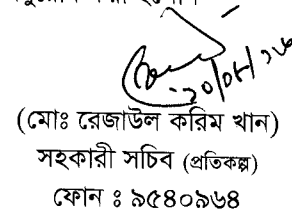 ২০/০৮/১৬
(মোঃ রেজাউল করিম খান)
সহকারী সচিব (প্রতিকল্প)
ফোন ঃ ৯৫৪০৯৬৪